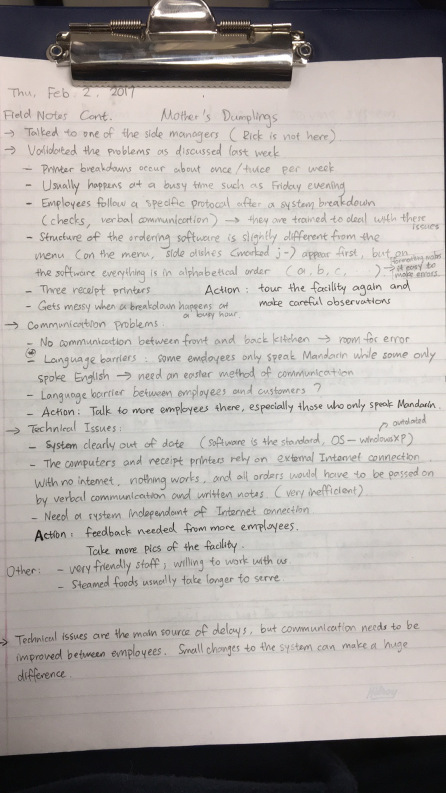 Thu, Feb 2, 2017
Field Notes Cont. Mother's Dumplings
→ Talked to one of the side managers (Rick is not here)
→ Validated the problems as discussed last week
- Printer breakdowns occur about once/twice per week
- Usually happens at a busy time such as Friday evening
- Employees follow a specific protocol after a system breakdown
(checks, verbal communication) → they are trained to deal with these issues
- Structure of the ordering software is slightly different from the
menu (on the menu, side dishes (marked j-) appear first, but on
the software everything is in alphabetical order (a, b, c, ) → easy to make errors.
- Three receipt printers Action: tour the facility again and
- Gets messy when a breakdown happens at a busy hour. make careful observations
→ Communication problems:
- No communication between front and back kitchen → room for error
- Language barriers: some employees only speak Mandarin while some only
spoke English → need an easier method of communication
- Language barrier between employees and customers?
- Action: Talk to more employees there, especially those who only speak Mandarin.
→ Technical Issues: outdated
- System clearly out of date (software is the standard, OS - windows XP)
- The computers and receipt printers rely on external Internet connection.
With no internet, nothing works, and all orders would have to be passed on
by verbal communication and written notes. (very inefficient)
- Need a system independent of Internet connection
Action: feedback needed from more employees.
Take more pics of the facility.
Other: - very friendly staff, willing to work with us.
- Steamed foods usually take longer to serve.
→ Technical issues are the main source of delays, but communication needs to be
improved between employees. Small changes to the system can make a huge
difference.